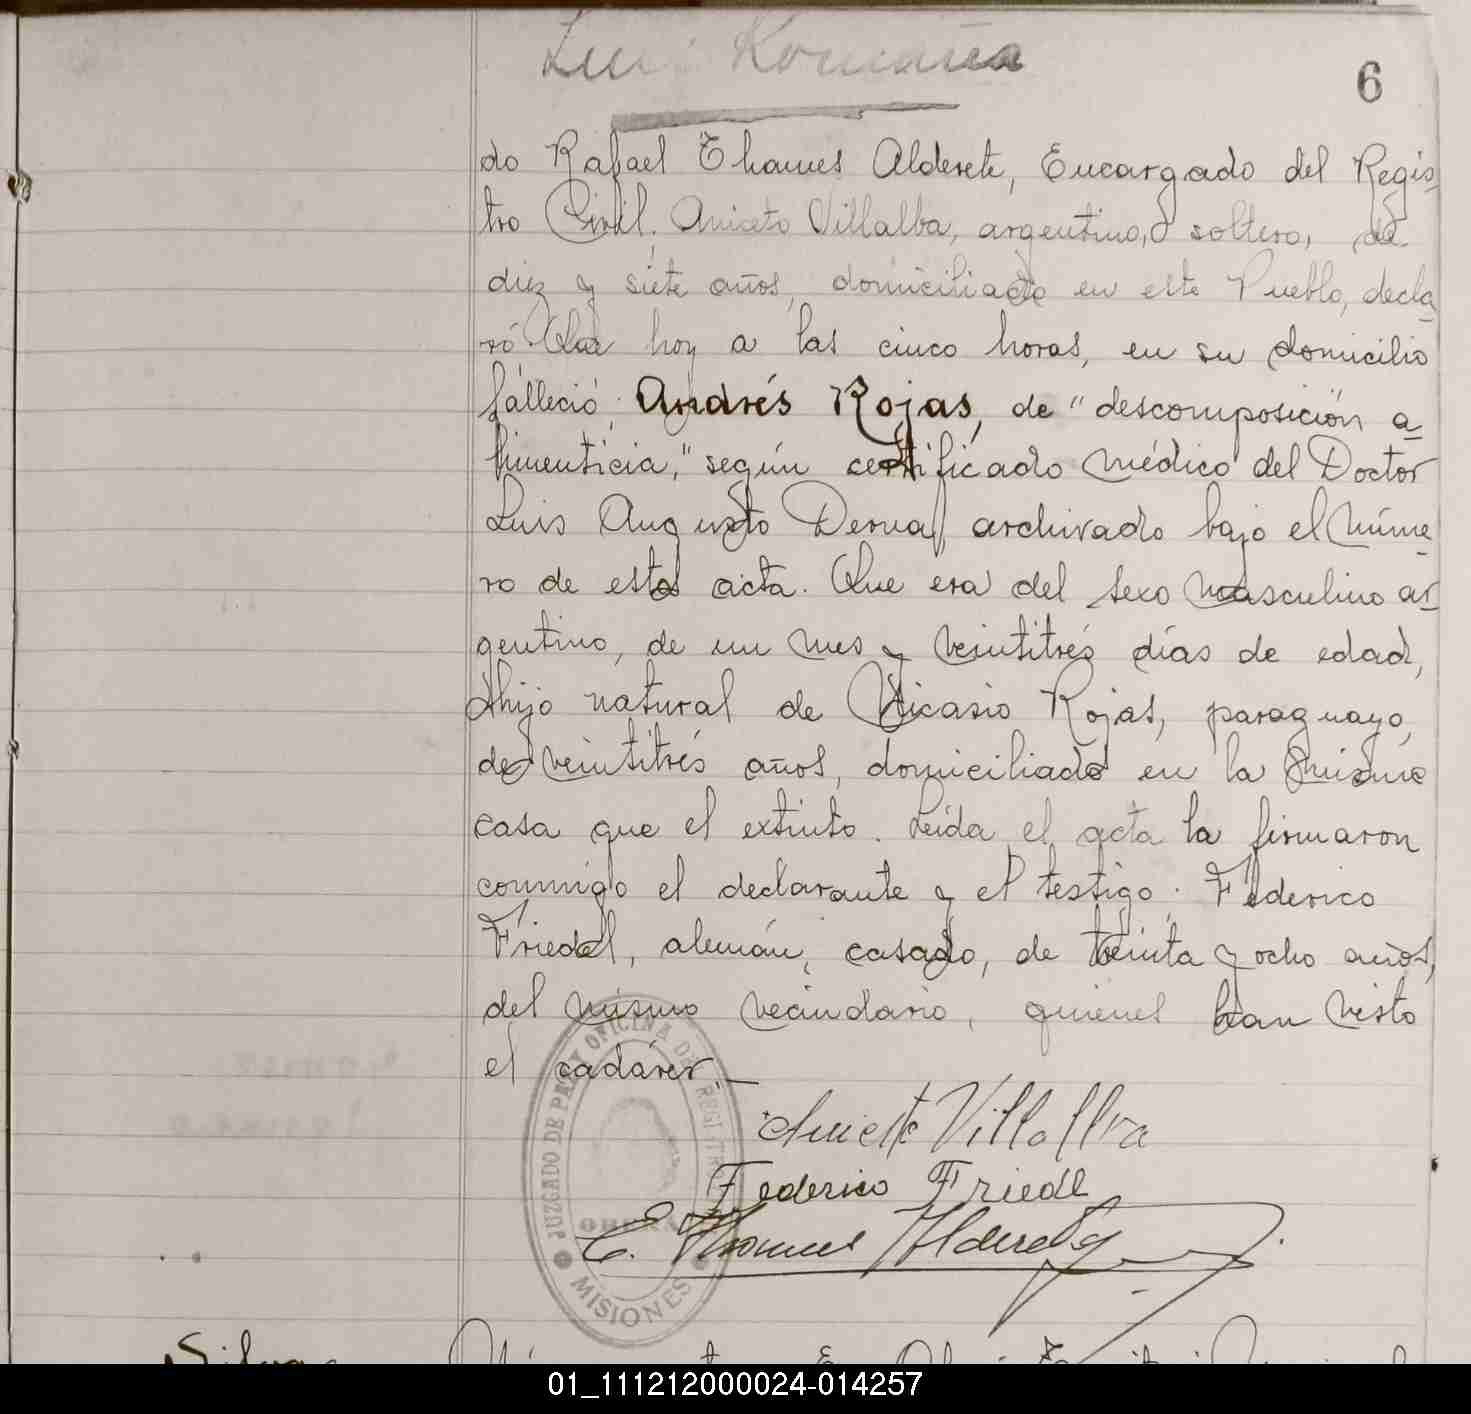 6
do Rafael Thames Alderete, Encargado del Regis-
tro Civil, Aniceto Villalba, argentino, soltero, de
diez y siete años, domiciliado en este Pueblo, decla-
ró: Que hoy a las cinco horas, en su domicilio
falleció Andrés Rojas, de "descomposición a-
limenticia," según certificado médico del Doctor
Luis Augusto Derna, archivado bajo el núme-
ro de esta acta. Que era del sexo masculino ar-
gentino, de un mes y veintitrés días de edad,
hijo natural de Nicasio Rojas, paraguayo,
de veintitrés años, domiciliado en la misma
casa que el extinto. Leida el acta la firmaron
conmigo el declarante y el testigo: Federico
Friedel, alemán, casado, de treinta y ocho años,
del mismo vecindario, quienes han visto
el cadáver.—
Aniceto Villalba
Federico Friedl
E. Thames Alderete
JUZGADO DE PAZ Y OFICINA DEL REGISTRO
OBERA
MISIONES
Silva
01_111212000024-014257